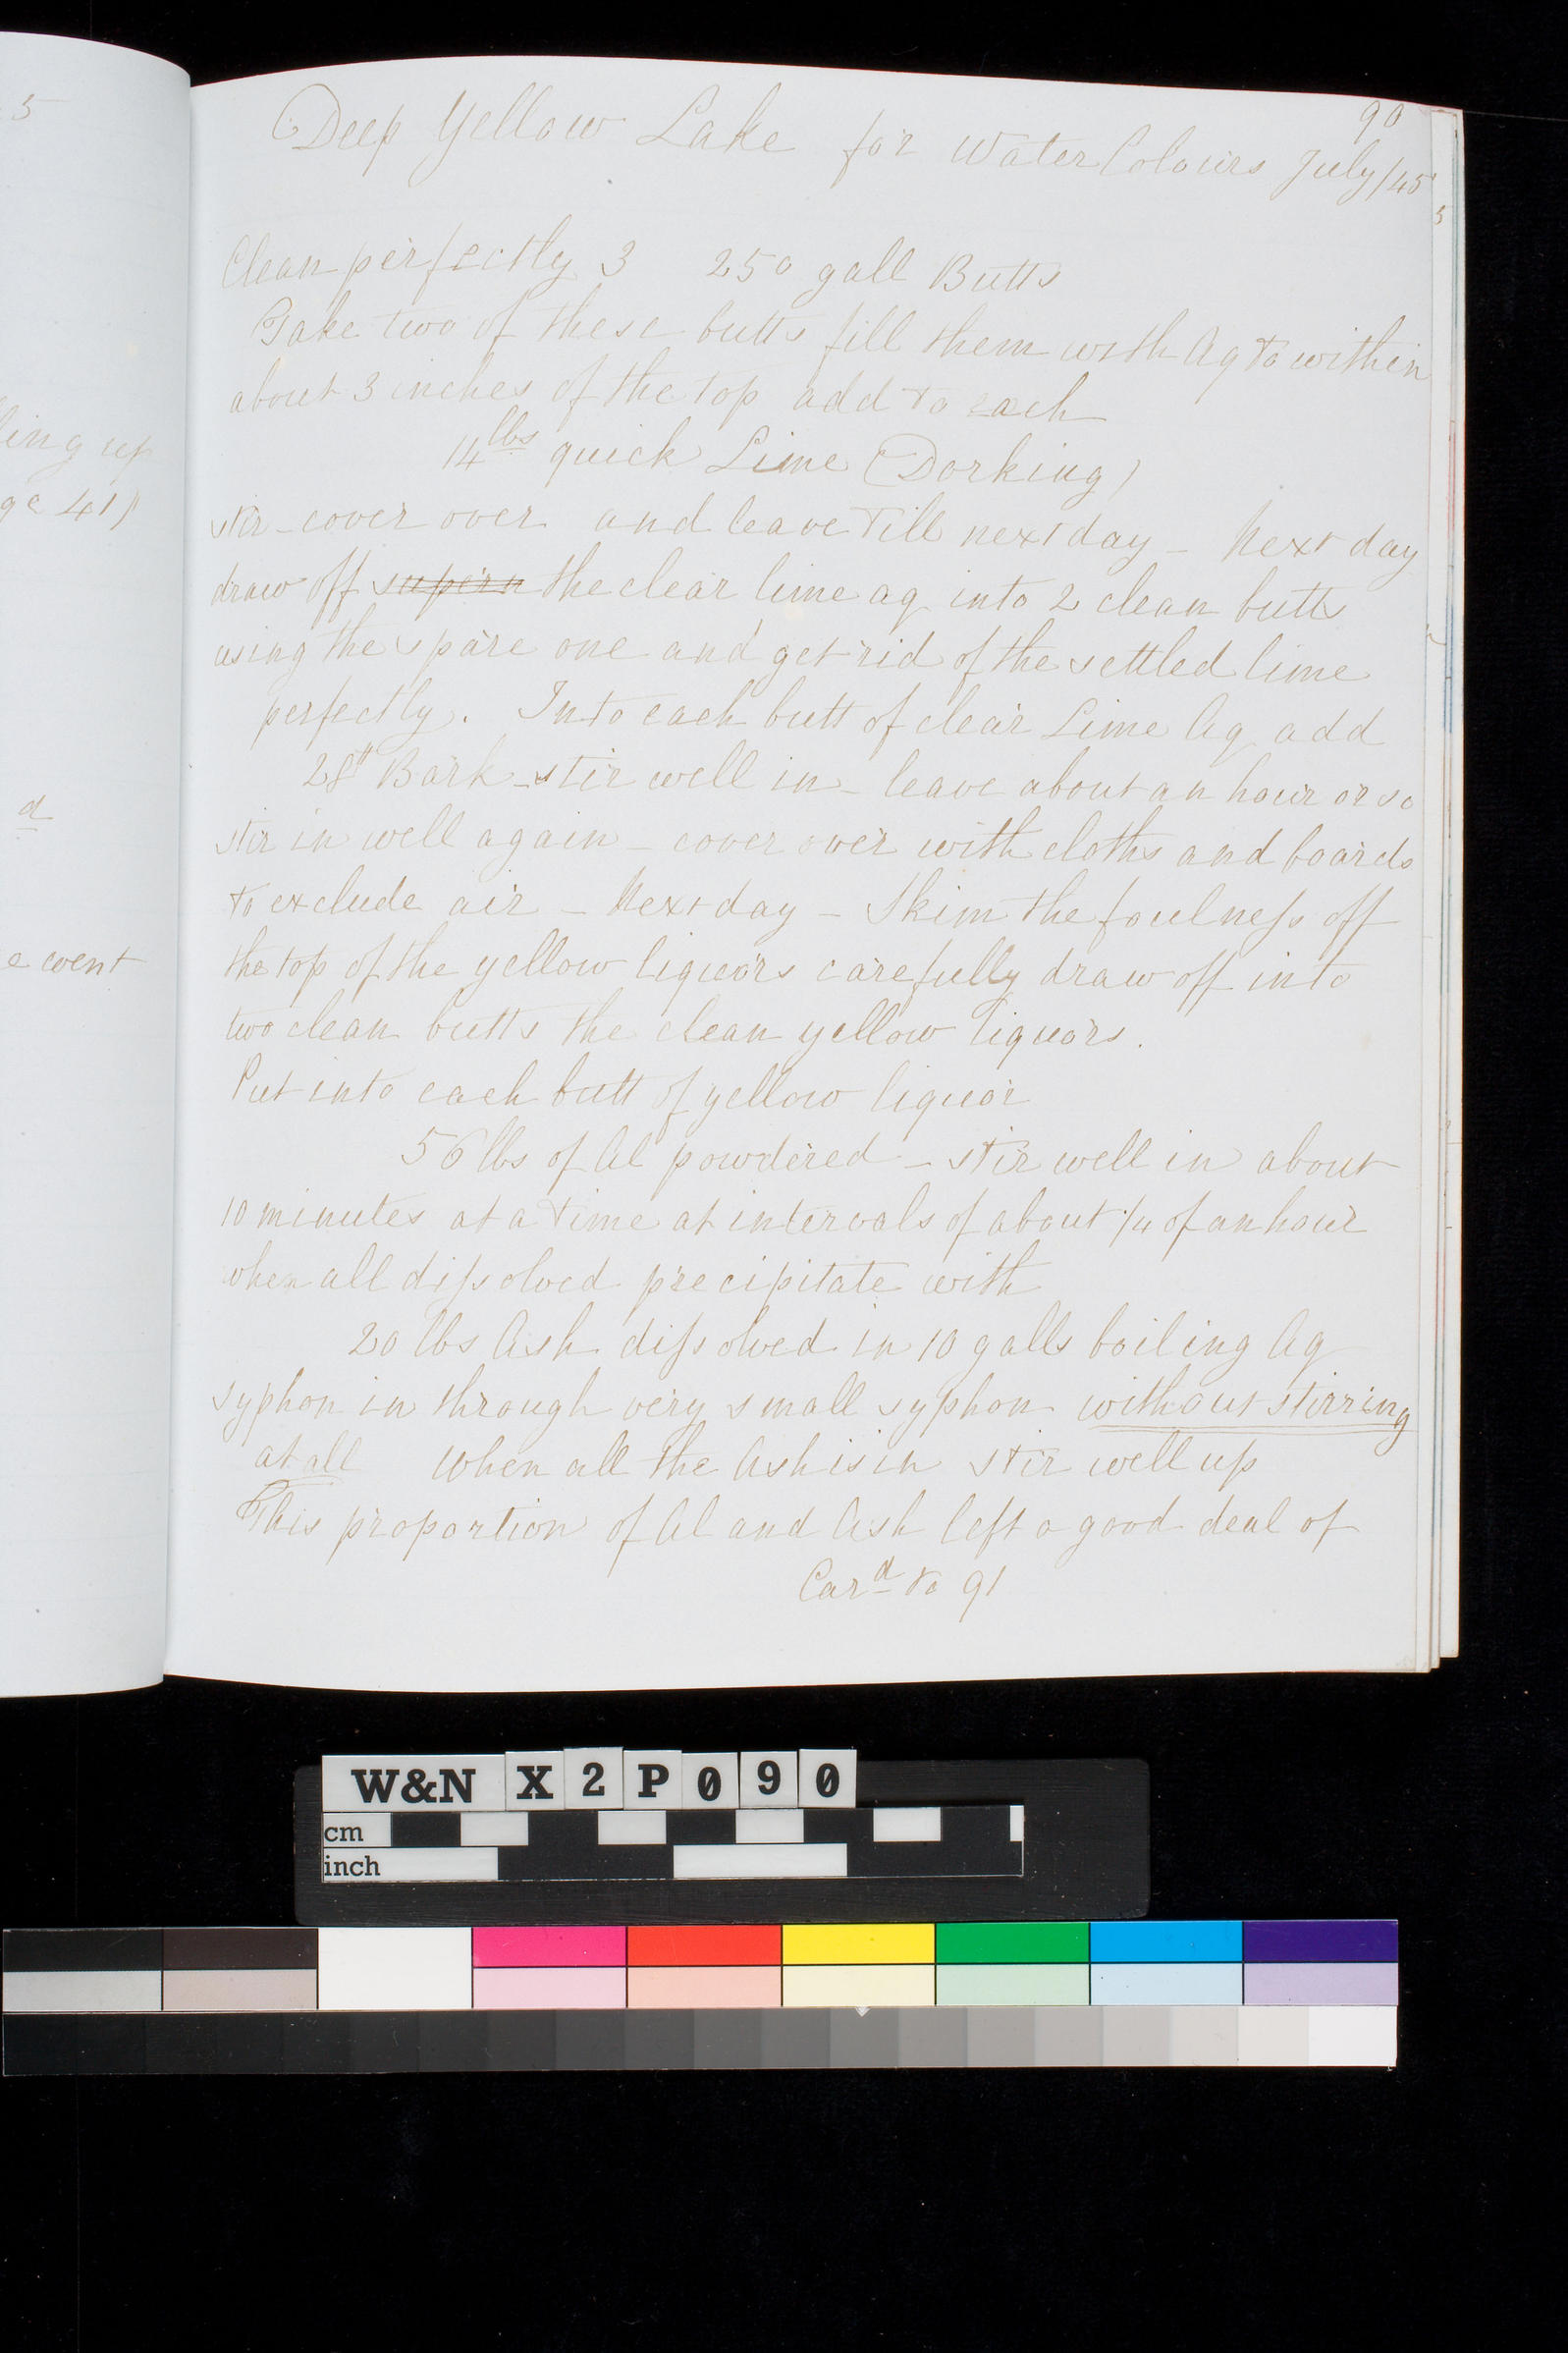 5
ling up
ge 41)
d
e went
90
Deep Yellow Lake for Water Colours July/45
5
Clean perfectly 3 250 gall Butts
Take two of these butts fill them with Aq to within
about 3 inches of the top add to each
14 lbs quick Lime (Dorking)
stir - cover over and leave till next day - Next day
draw off supern the clear lime aq into 2 clean butts
using the spare one and get rid of the settled lime
perfectly. Into each butt of clear Lime Aq add
28 lb Bark - stir well in - leave about an hour or so
stir in well again - cover over with cloths and boards
to exclude air - Next day - Skim the foulness off
the top of the yellow liquors carefully draw off into
two clean butts the clean yellow liquors.
Put into each butt of yellow liquor
56 lbs of Al powdered - stir well in about
10 minutes at a time at intervals of about 1/4 of an hour
when all dissolved precipitate with
20 lbs Ash dissolved in 10 galls boiling Aq
syphon in through very small syphon without stirring
at all when all the Ash is in stir well up
This proportion of Al and Ash left a good deal of
Card to 91
W&N X2P090
cm
inch